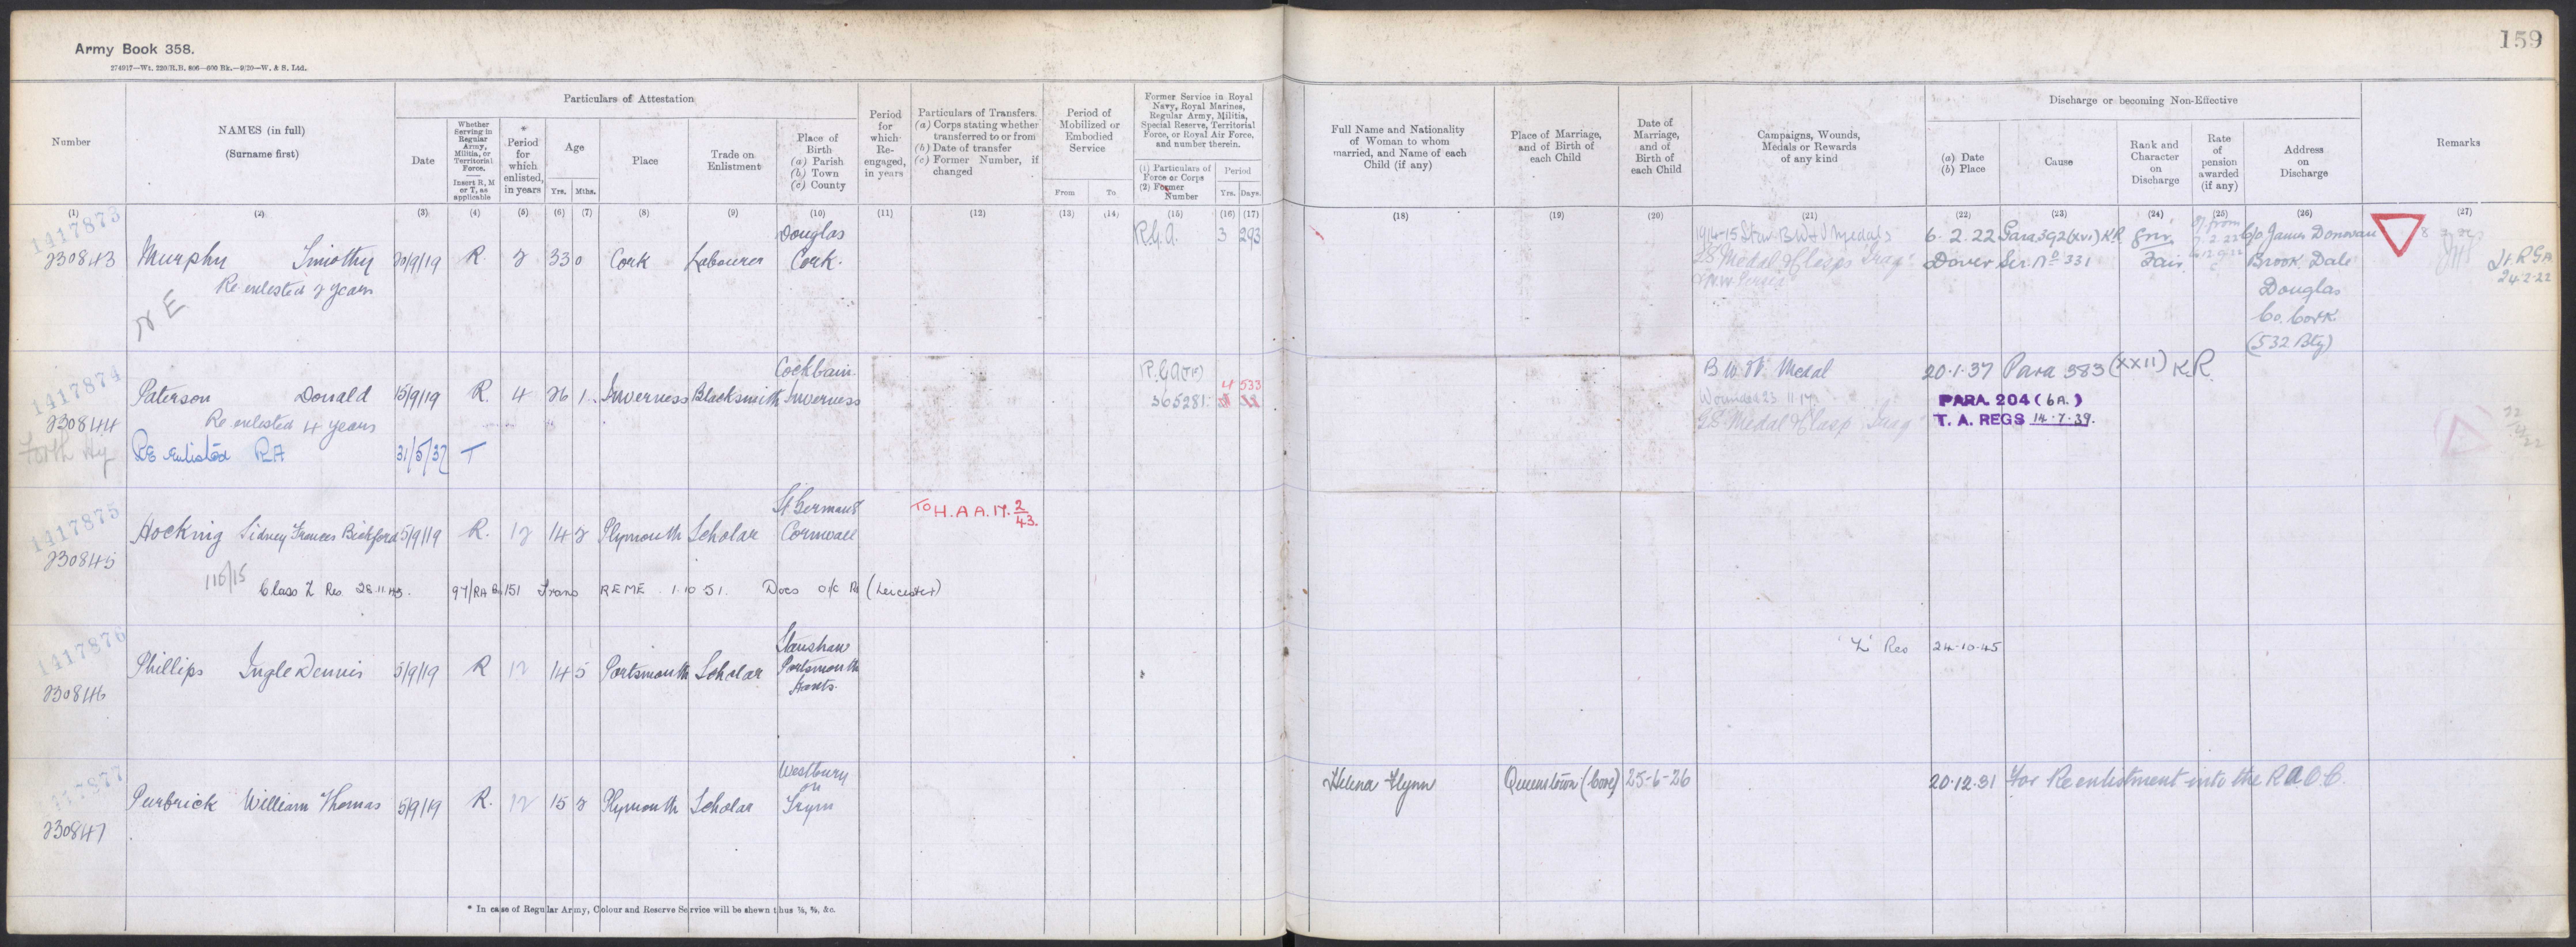 Army Book 358.
274917—Wt. 220/H.B. 806—600 Bk.—9/20—W. & S. Ltd.
159
Number
NAMES (in full)
(Surname first)
Particulars of Attestation
Date
Whether Serving in Regular Army, Militia, or Territorial Force.
Insert R, M or T, as applicable
* Period for which enlisted, in years
Age
Yrs. Mths.
Place
Trade on Enlistment
Place of Birth
(a) Parish
(b) Town
(c) County
Period for which Re-engaged, in years
Particulars of Transfers.
(a) Corps stating whether transferred to or from
(b) Date of transfer
(c) Former Number, if changed
Period of Mobilized or Embodied Service
From To
Former Service in Royal Navy, Royal Marines, Regular Army, Militia, Special Reserve, Territorial Force, or Royal Air Force, and number therein.
(1) Particulars of Force or Corps
(2) Former Number
Period
Yrs. Days.
Full Name and Nationality of Woman to whom married, and Name of each Child (if any)
Place of Marriage, and of Birth of each Child
Date of Marriage, and of Birth of each Child
Campaigns, Wounds, Medals or Rewards of any kind
Discharge or becoming Non-Effective
(a) Date
(b) Place
Cause
Rank and Character on Discharge
Rate of pension awarded (if any)
Address on Discharge
Remarks
(1) (2) (3) (4) (5) (6) (7) (8) (9) (10) (11) (12) (13) (14) (15) (16) (17) (18) (19) (20) (21) (22) (23) (24) (25) (26) (27)
1417873
230843 Murphy Timothy 20/9/19 R 2 33 0 Cork Labourer Douglas Cork. R.G.A. 3 293
Re enlisted 2 years
N E
1914-15 Star B W & V Medals
GS Medal & Clasps Iraq
& N.W. Persia
6.2.22 Para 392 (xvi) K.R. Gnr. c/o James Donovan
Dover Ser No 331 Fair Brook Dale
Douglas
Co. Cork
(532 Bty)
24.2.22
1417874
230844 Paterson Donald 15/9/19 R. 4 26 1 Inverness Blacksmith Cockbain Inverness R.G.A (TF) 365281 4 533
Re enlisted 4 years
Forth Hy
Re enlisted RA 31/5/37 T
B.W.V. Medal
Wounded 23 11 17
GS Medal & Clasp Iraq
20.1.37 Para 383 (XXII) K.R.
PARA. 204 (6A.)
T. A. REGS 14.7.39.
1417875
230845 Hocking Sidney Frances Bickford 5/9/19 R. 12 14 2 Plymouth Scholar St Germans Cornwall
TO H.A A.M. 2/43.
116/15 Class Z Res 28.11.45. 97/RA Bn/51 Trans REME 1.10.51. Docs O/C Rs (Leicester)
1417876
230846 Phillips Ingle Dennis 5/9/19 R 12 14 5 Portsmouth Scholar Stamshaw Portsmouth Hants.
'Z' Res 24.10.45
117877
230847 Purbrick William Thomas 5/9/19 R. 12 15 2 Plymouth Scholar Westbury on Trym
Helena Flynn Queenstown (Cove) 25-6-26
20.12.31 For Re enlistment into the R.A.O.C.
* In case of Regular Army, Colour and Reserve Service will be shewn thus ⅞, ¾, &c.